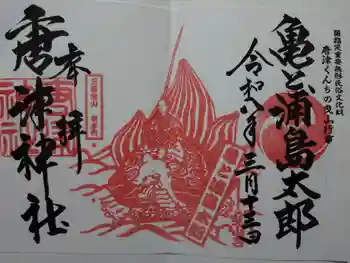 国指定重要無形民俗文化財
唐津くんちの曳山行事
亀と浦島太郎
令和八年三月十三日
奉拝
唐津神社